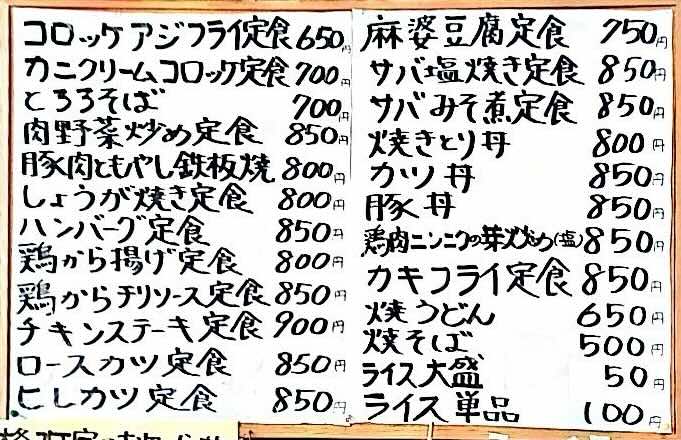 コロッケアジフライ定食 650円
カニクリームコロッケ定食 700円
とろろそば 700円
肉野菜炒め定食 850円
豚肉ともやし鉄板焼 800円
しょうが焼き定食 800円
ハンバーグ定食 850円
鶏から揚げ定食 800円
鶏からチリソース定食 850円
チキンステーキ定食 900円
ロースカツ定食 850円
ヒレカツ定食 850円
麻婆豆腐定食 750円
サバ塩焼き定食 850円
サバみそ煮定食 850円
焼きとり丼 800円
カツ丼 850円
豚丼 850円
鶏肉ニンニクの芽炒め(塩) 850円
カキフライ定食 850円
焼うどん 650円
焼そば 500円
ライス大盛 50円
ライス単品 100円